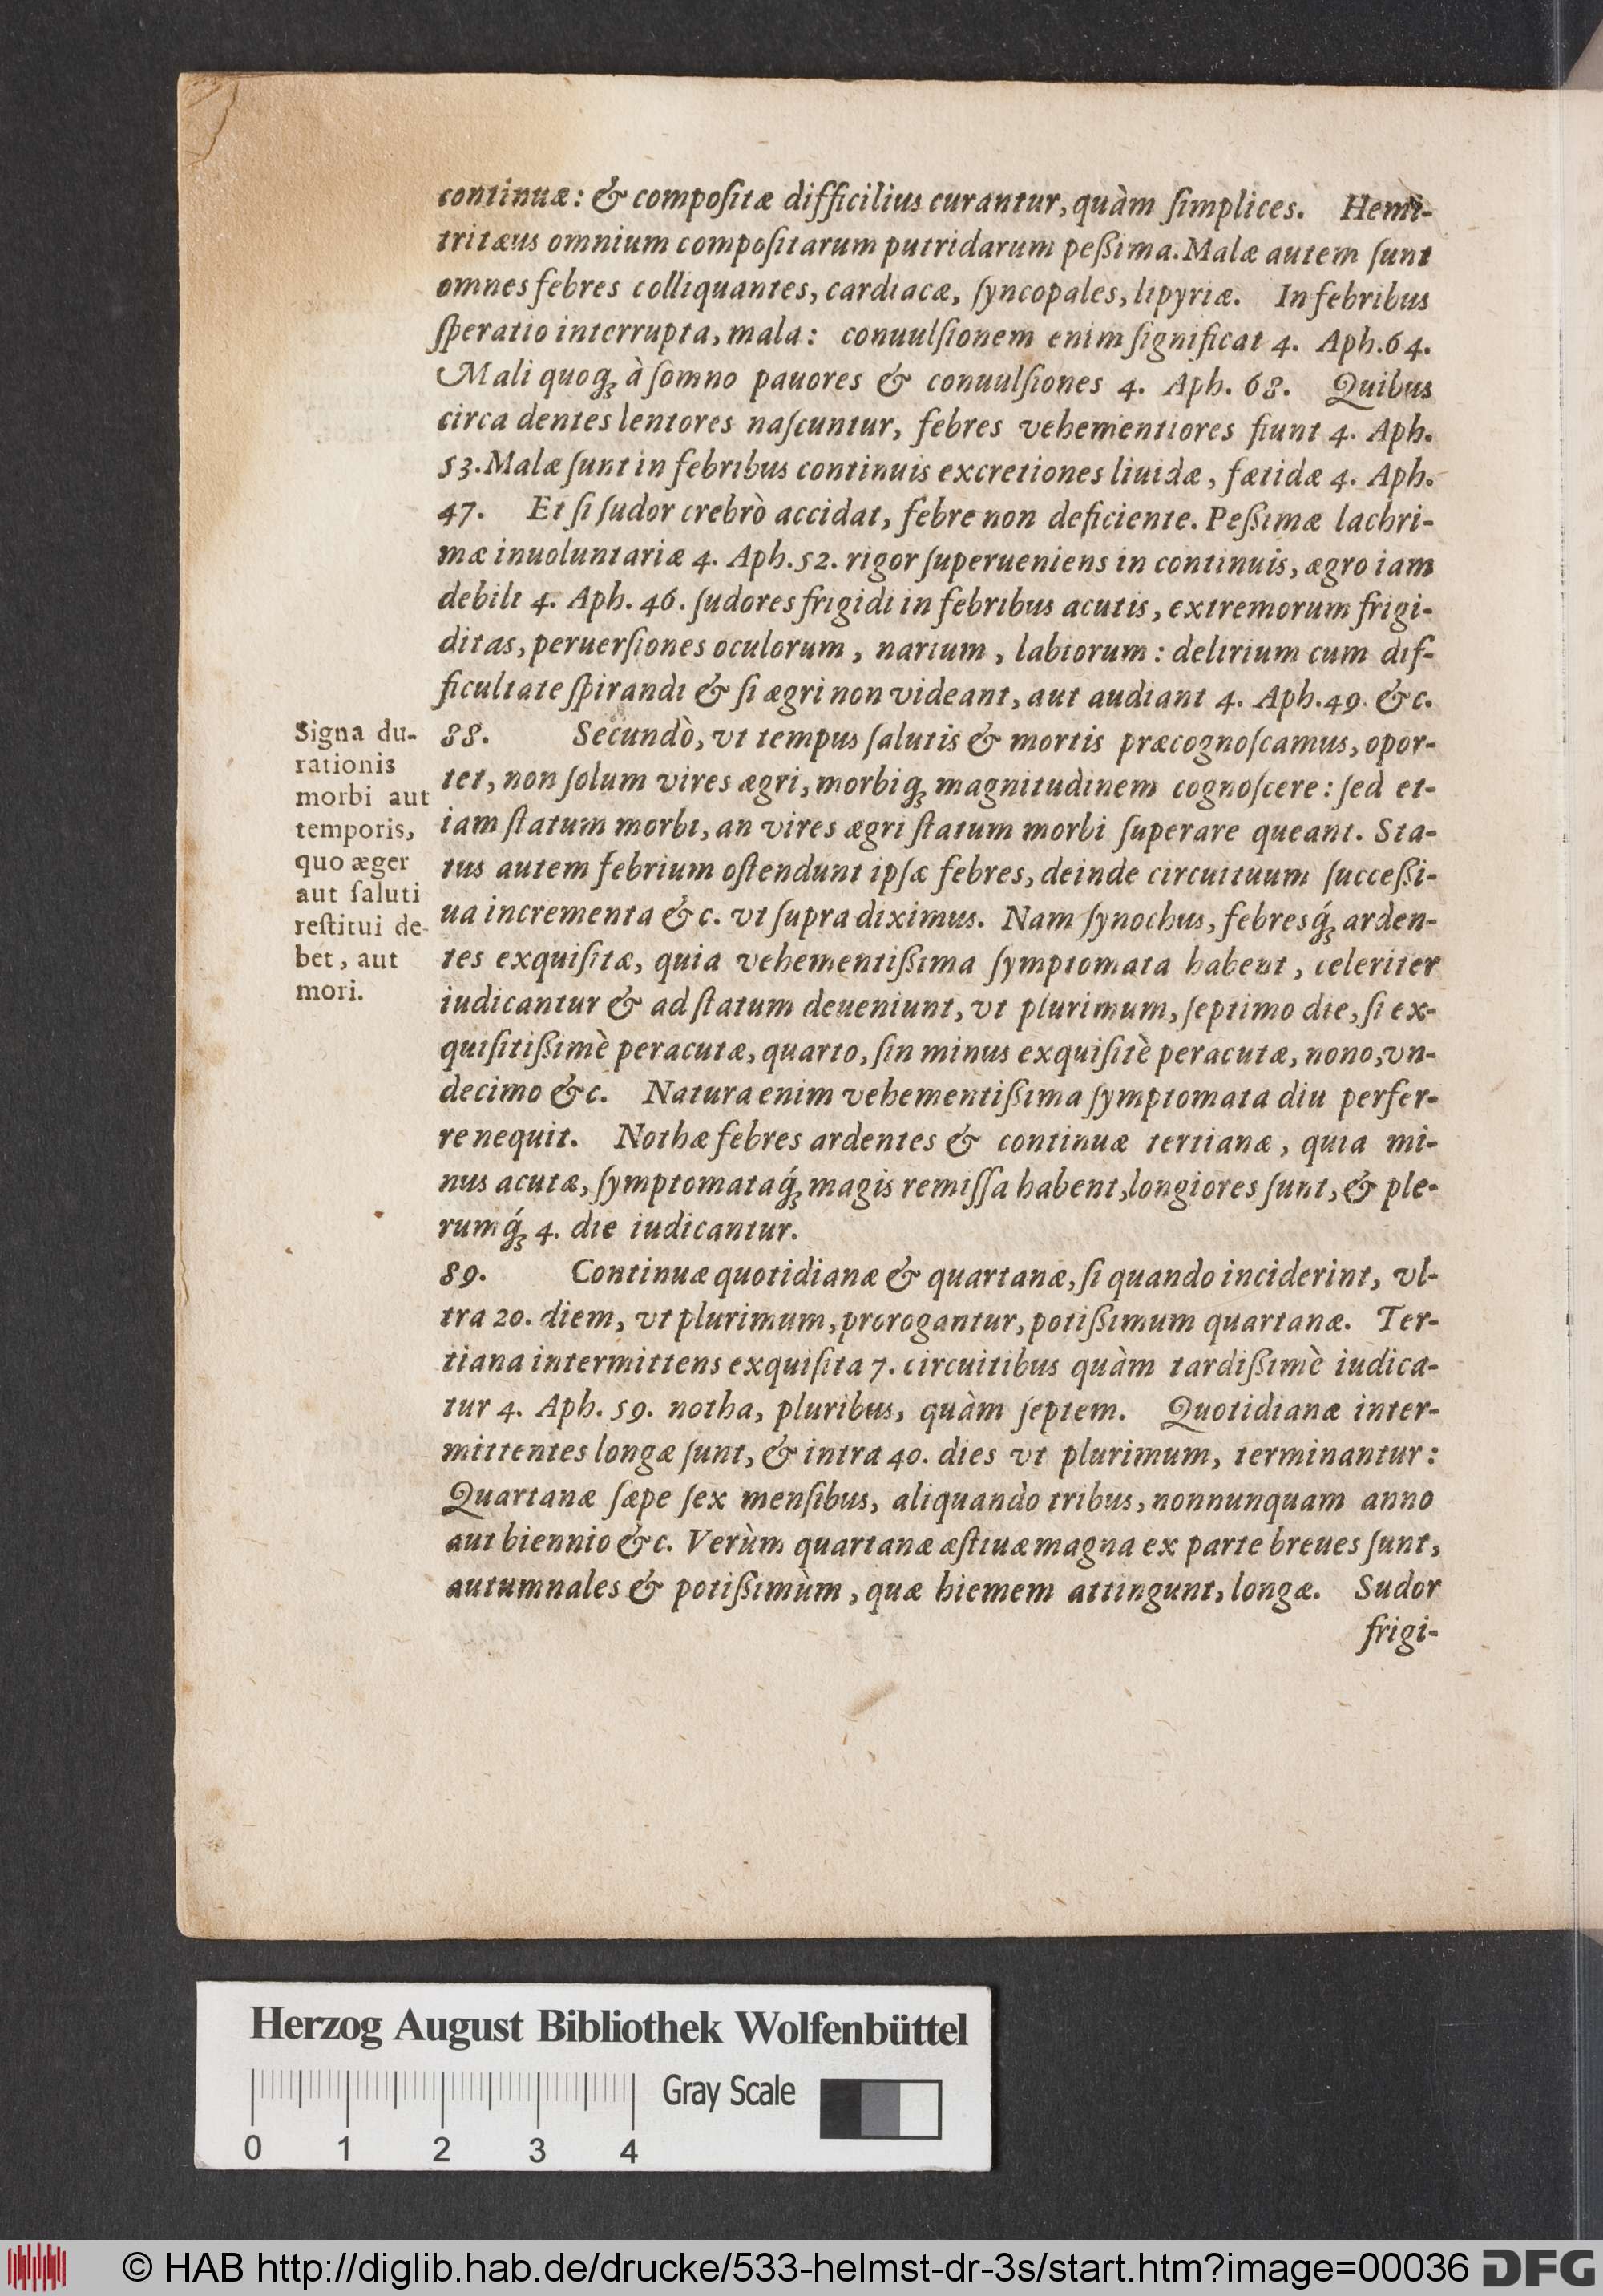 continuæ: & compoſitæ difficilius curantur, quàm ſimplices. Hemi-
tritæus omnium compoſitarum putridarum peßima. Malæ autem ſunt
omnes febres colliquantes, cardiacæ, ſyncopales, lipyriæ. In febribus
ſperatio interrupta, mala: conuulſionem enim ſignificat 4. Aph. 64.
Mali quoq́ꝫ à ſomno pauores & conuulſiones 4. Aph. 68. Quibus
circa dentes lentores naſcuntur, febres vehementiores fiunt 4. Aph.
53. Malæ ſunt in febribus continuis excretiones liuidæ, fætidæ 4. Aph.
47. Et ſi ſudor crebrò accidat, febre non deficiente. Peßimæ lachri-
mæ inuoluntariæ 4. Aph. 52. rigor ſuperueniens in continuis, ægro iam
debili 4. Aph. 46. ſudores frigidi in febribus acutis, extremorum frigi-
ditas, peruerſiones oculorum, narium, labiorum: delirium cum dif-
ficultate ſpirandi & ſi ægri non videant, aut audiant 4. Aph. 49. &c.
Signa du-
rationis
morbi aut
temporis,
quo æger
aut ſaluti
reſtitui de-
bet, aut
mori.
88. Secundò, vt tempus ſalutis & mortis præcognoſcamus, opor-
tet, non ſolum vires ægri, morbiqꝫ magnitudinem cognoſcere: ſed et-
iam ſtatum morbi, an vires ægri ſtatum morbi ſuperare queant. Sta-
tus autem febrium oſtendunt ipſæ febres, deinde circuituum ſucceßi-
ua incrementa &c. vt ſupra diximus. Nam ſynochus, febresq́ꝫ arden-
tes exquiſitæ, quia vehementißima ſymptomata habent, celeriter
iudicantur & ad ſtatum deueniunt, vt plurimum, ſeptimo die, ſi ex-
quiſitißimè peracutæ, quarto, ſin minus exquiſitè peracutæ, nono, vn-
decimo &c. Natura enim vehementißima ſymptomata diu perfer-
re nequit. Nothæ febres ardentes & continuæ tertianæ, quia mi-
nus acutæ, ſymptomataq́ꝫ magis remiſſa habent, longiores ſunt, & ple-
rumq́ꝫ 4. die iudicantur.
89. Continuæ quotidianæ & quartanæ, ſi quando inciderint, vl-
tra 20. diem, vt plurimum, prorogantur, potißimum quartanæ. Ter-
tiana intermittens exquiſita 7. circuitibus quàm tardißimè iudica-
tur 4. Aph. 59. notha, pluribus, quàm ſeptem. Quotidianæ inter-
mittentes longæ ſunt, & intra 40. dies vt plurimum, terminantur:
Quartanæ ſæpe ſex menſibus, aliquando tribus, nonnunquam anno
aut biennio &c. Verùm quartanæ æſtiuæ magna ex parte breues ſunt,
autumnales & potißimùm, quæ hiemem attingunt, longæ. Sudor
frigi-
Herzog August Bibliothek Wolfenbüttel
Gray Scale
0 1 2 3 4
© HAB http://diglib.hab.de/drucke/533-helmst-dr-3s/start.htm?image=00036 DFG